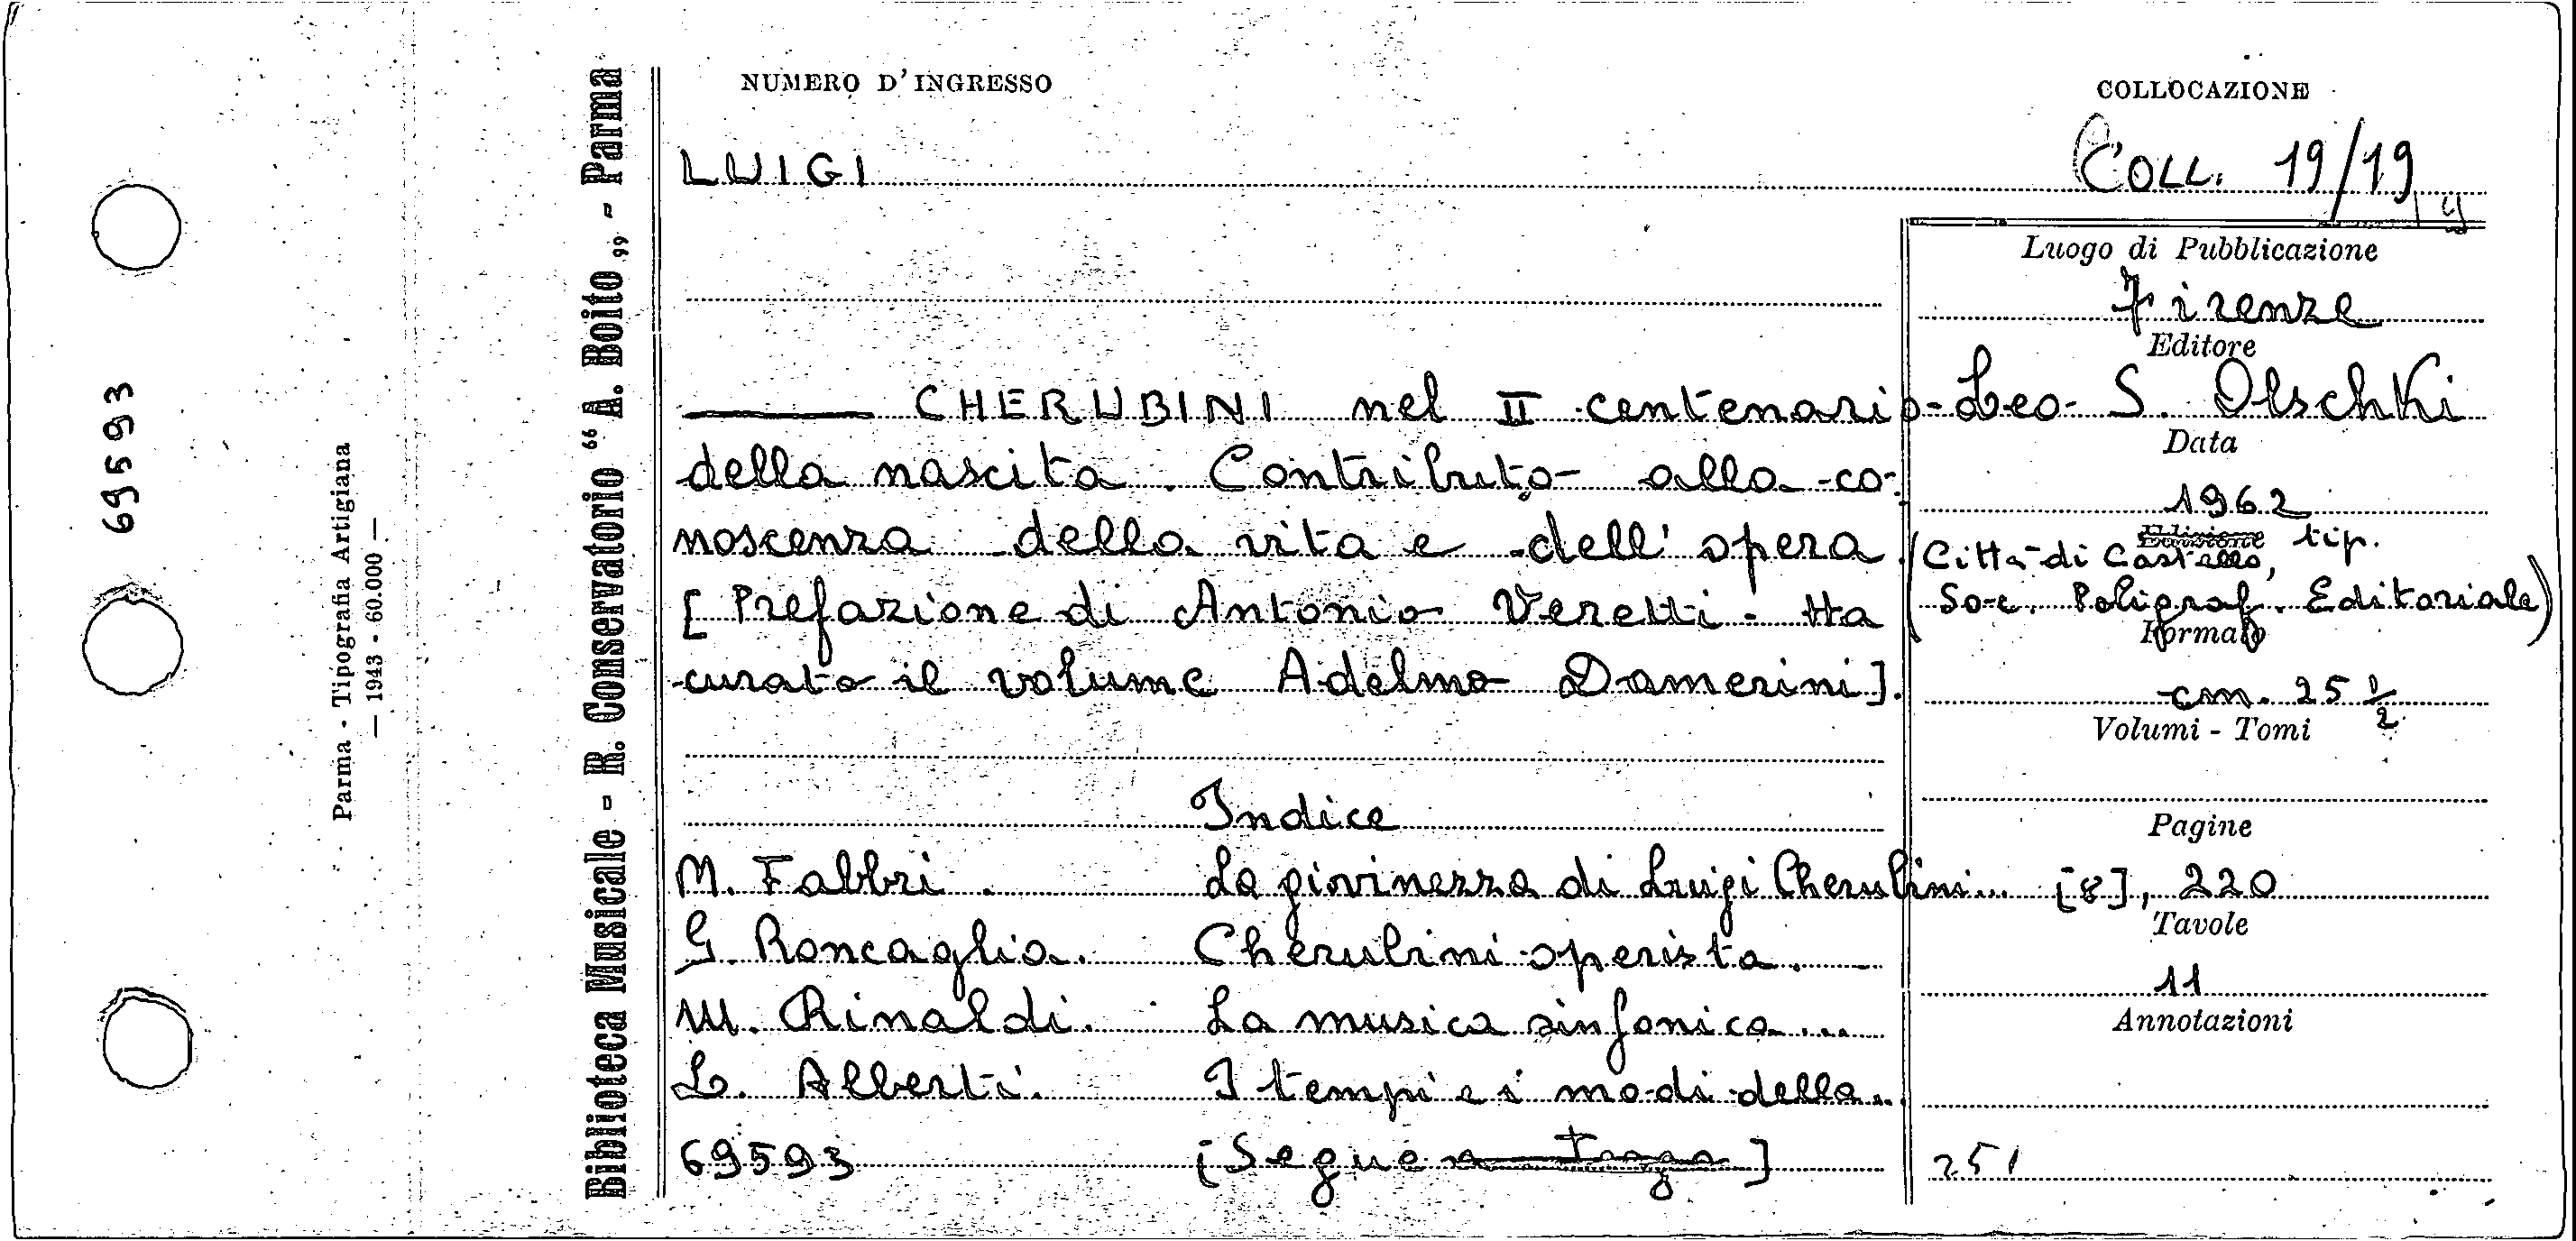 69593
Parma - Tipografia Artigiana
— 1943 - 60.000 —
Biblioteca Musicale - R. Conservatorio “ A. Boito „ - Parma
NUMERO D'INGRESSO
COLLOCAZIONE
LUIGI
COLL. 19/19
Luogo di Pubblicazione
Firenze
Editore
Leo S. Olschki
Data
1962
Edizione
(Città di Castello, tip.
Soc. Poligraf. Editoriale)
Formato
cm. 25 1/2
Volumi - Tomi
Pagine
[8], 220
Tavole
11
Annotazioni
251
——— CHERUBINI nel II centenario
della nascita. Contributo alla co-
noscenza della vita e dell'opera
[Prefazione di Antonio Veretti - Ha
curato il volume Adelmo Damerini].
Indice
M. Fabbri. La giovinezza di Luigi Cherubini...
G. Roncaglia. Cherubini operista.
M. Rinaldi. La musica sinfonica...
L. Alberti. I tempi e i modi della...
69593 [Segue a tergo]